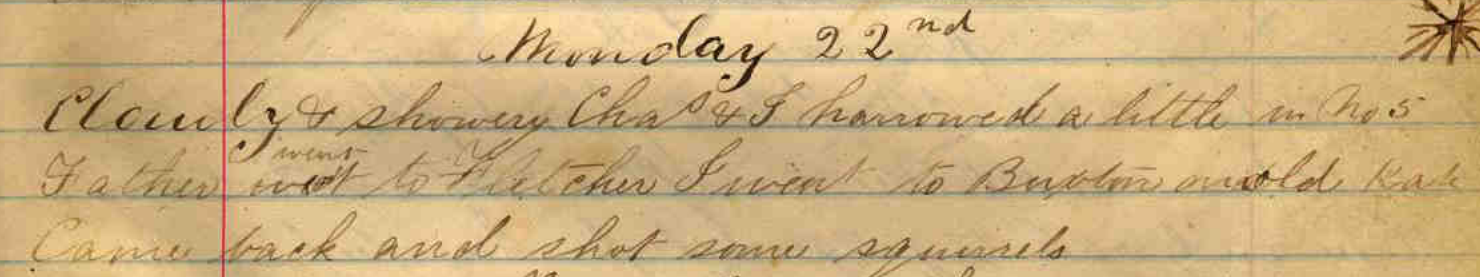 Monday 22nd
Cloudy & showery Chas & I harrowed a little in No 5
went
Father went to Fletcher I went to Buxton on old Kate
Came back and shot some squirrels